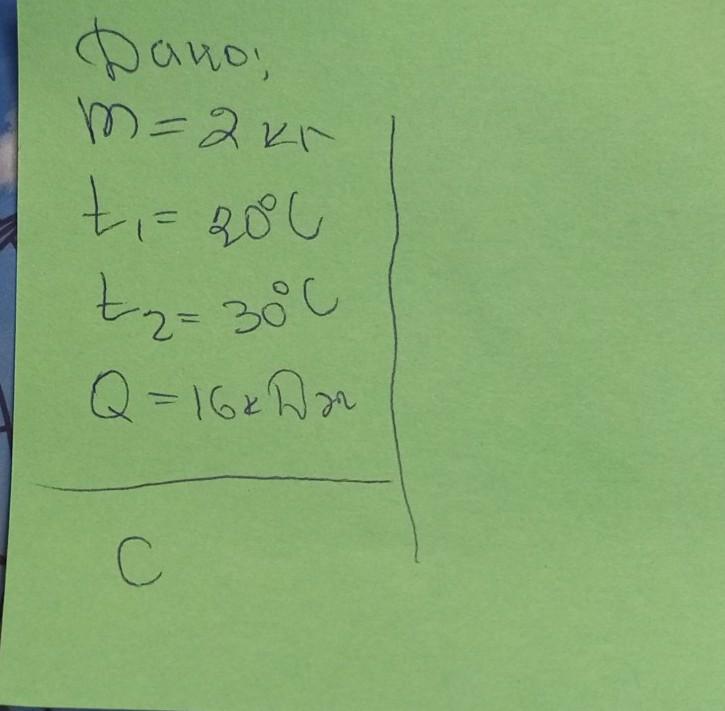 Дано:
m = 2 кг
t₁ = 20°C
t₂ = 30°C
Q = 16кДж
C